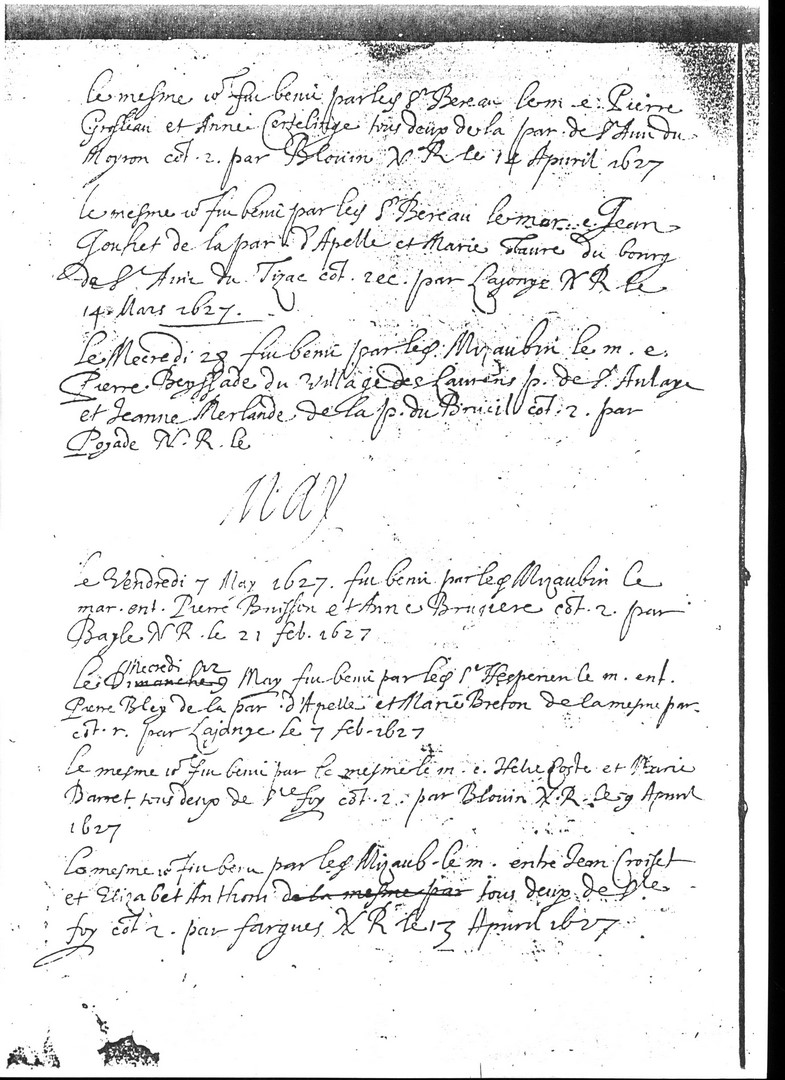 le mesme io.r fut beni par led S.r Bereau le m. e. Pierre
Grosleau et Anne tous deux de la par. de S.t Aun du
Moyron cot. 2. par Blouin N R le 14 Apuril 1627
le mesme io.r fut beni par led S.r Bereau le mar. e. Jean
Jouhet de la par. d'Apelle et Marie Faure du bourg
de S.t Anne du Tizac cot. 2 ec. par Lajonye N R le
14 Mars 1627.
le Mecredi 28 fut beni par led. Mizaubin le m. e.
Pierre Beyssade du village des Laurens p. de S.t Aulaye
et Jeanne Merlande de la p. du Brueil cot. 2. par
Poyade N. R. le
May
le Vendredi 7 May 1627. fut beni par led Mizaubin le
mar. ent. Pierre Buisson et Anne Brugiere cot. 2. par
Bayle N R. le 21 feb. 1627
Mecredi 12
le Dimanche 9 May fut beni par led S.r Hesperien le m. ent.
Pierre Bley de la par. d'Apelle et Marie Breton de la mesme par.
cot. r. par Lajonye le 7 feb. 1627
le mesme io.r fut beni par le mesme le m. e. Helie Coste et Marie
Barret tous deux de S.te foy cot. 2. par Blouin N. R. le 9 Apuril
1627
le mesme io.r fut beni par led Mizaub. le m. entre Jean Croiset
et Elizabet Anthoni de la mesme par tous deux de S.te
foy cot 2. par fargues N R le 13 Apuril 1627